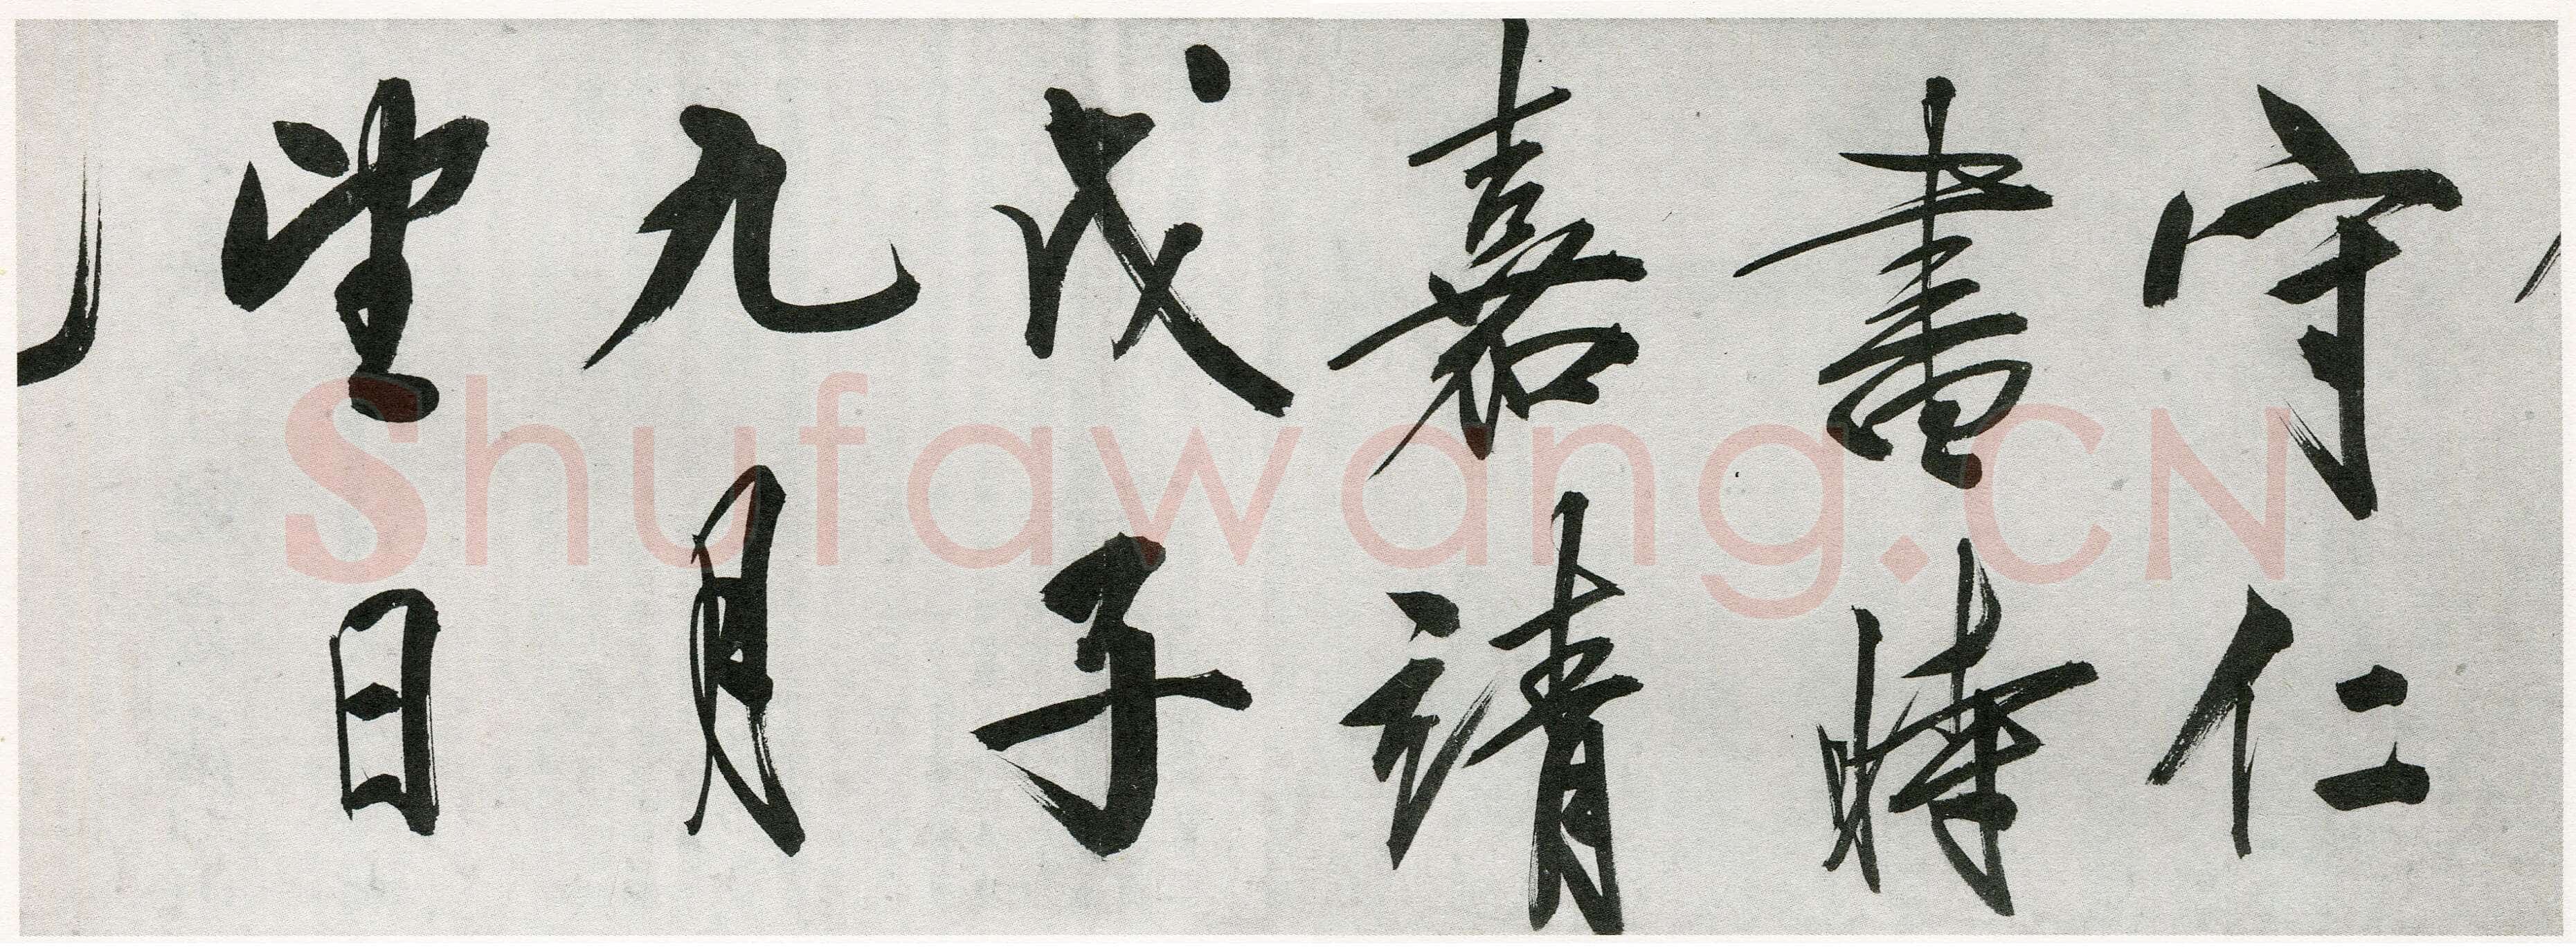 守仁
書時
嘉靖
戊子
九月
望日
Shufawang.CN